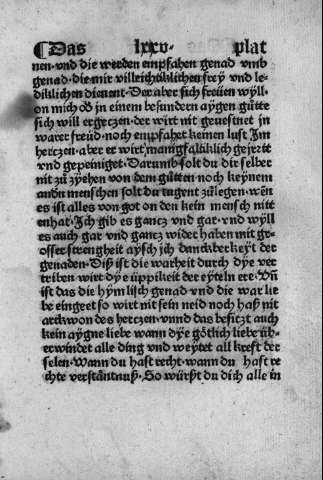 ¶ Das lxxv. plat
nen. vnd die werden empfahen genad vmb
genad. die mir villeichtiklichen frey vnd le-
diklichen dienent. Der aber sich freüen wyll.
on mich ob in einem besundern aygen gütte
sich will ergeczen. der wirt nit geuestnet jn
warer freüd. noch empfahet keinen lust Im
herczen. aber er wirt manigfaltiklich geirret
vnd gepeiniget. Darumb solt du dir selber
nit zů zyehen von dem gůtten noch keynem
andrn menschen solt du tugent zůlegen. wen̄
es ist alles von got on den kein mensch nitt
enhat. Ich gib es gancz vnd gar. vnd wyll
es auch gar vnd gancz wider haben mit gr-
osser strengheit aysch jch danckberkeyt der
genaden. Diß ist die warheit durch dye ver
triben wirt dye üppikeit der eyteln ere. Vn̄
ist das die hymlisch genad vnd die war lie
be eingeet so wirt nit sein neid noch haß nit
arckwon des herczen. vnnd das besitzt auch
kein aygne liebe wann dye götlich liebe üb-
erwindet alle ding vnd weytet all kreft der
selen. Wann du hast recht. wann du hast re
chte verstāntnuß. So würst du dich alle in